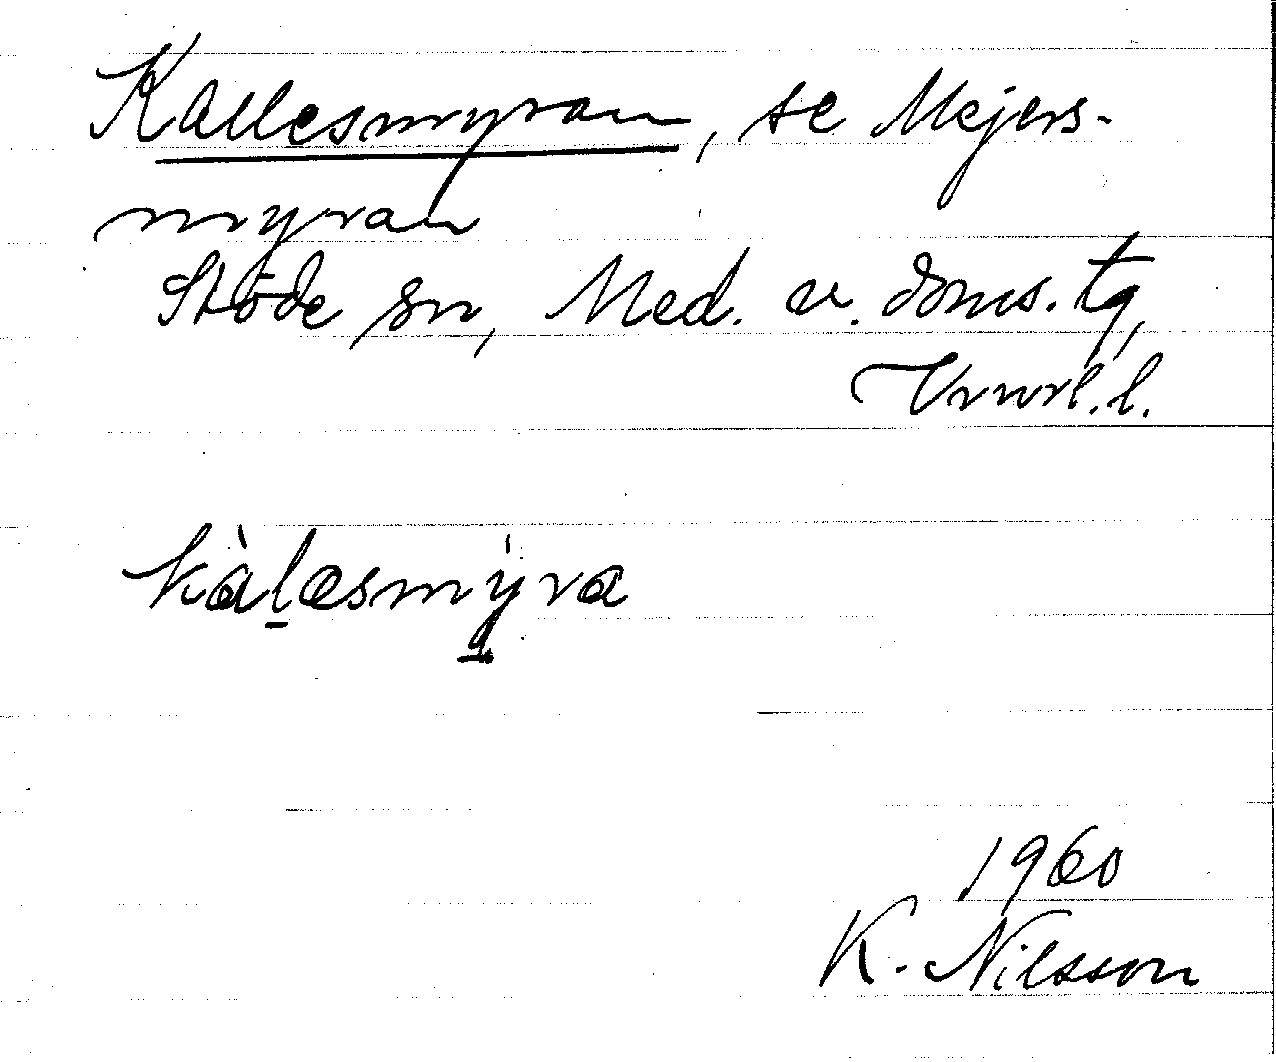 Kallesmyran, se Mejers-
myran
Stöde sn, Med. v. doms. tg,
Vnrl. l.
kàl̠æsmy̠̍ra
1960
K. Nilsson